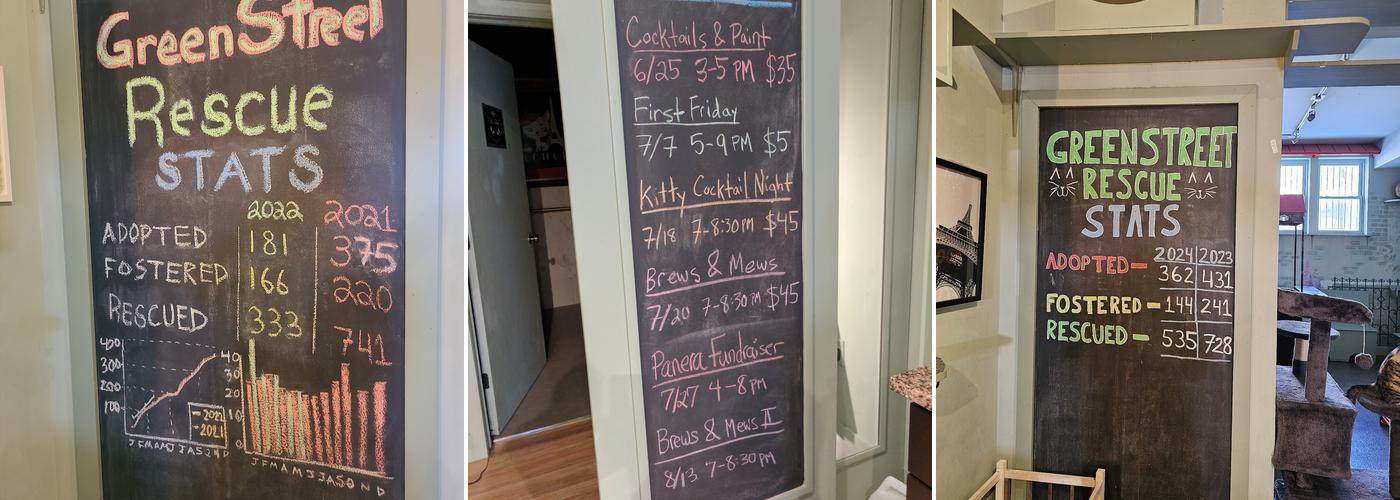 GreenStreet
Rescue
STATS
2022 2021
ADOPTED 181 375
FOSTERED 166 220
RESCUED 333 741
400
300
200
100
- 2021
- 2021
J F M A M J J A S O N D
40
30
20
10
0
J F M A M J J A S O N D
Cocktails & Paint
6/25 3-5 PM $35
First Friday
7/7 5-9 PM $5
Kitty Cocktail Night
7/18 7-8:30PM $45
Brews & Mews
7/20 7-8:30 PM $45
Panera Fundraiser
7/27 4-8pm
Brews & Mews II
8/13 7-8:30PM
GREENSTREET
RESCUE
STATS
2024 2023
ADOPTED- 362 431
FOSTERED - 144 241
RESCUED - 535 728